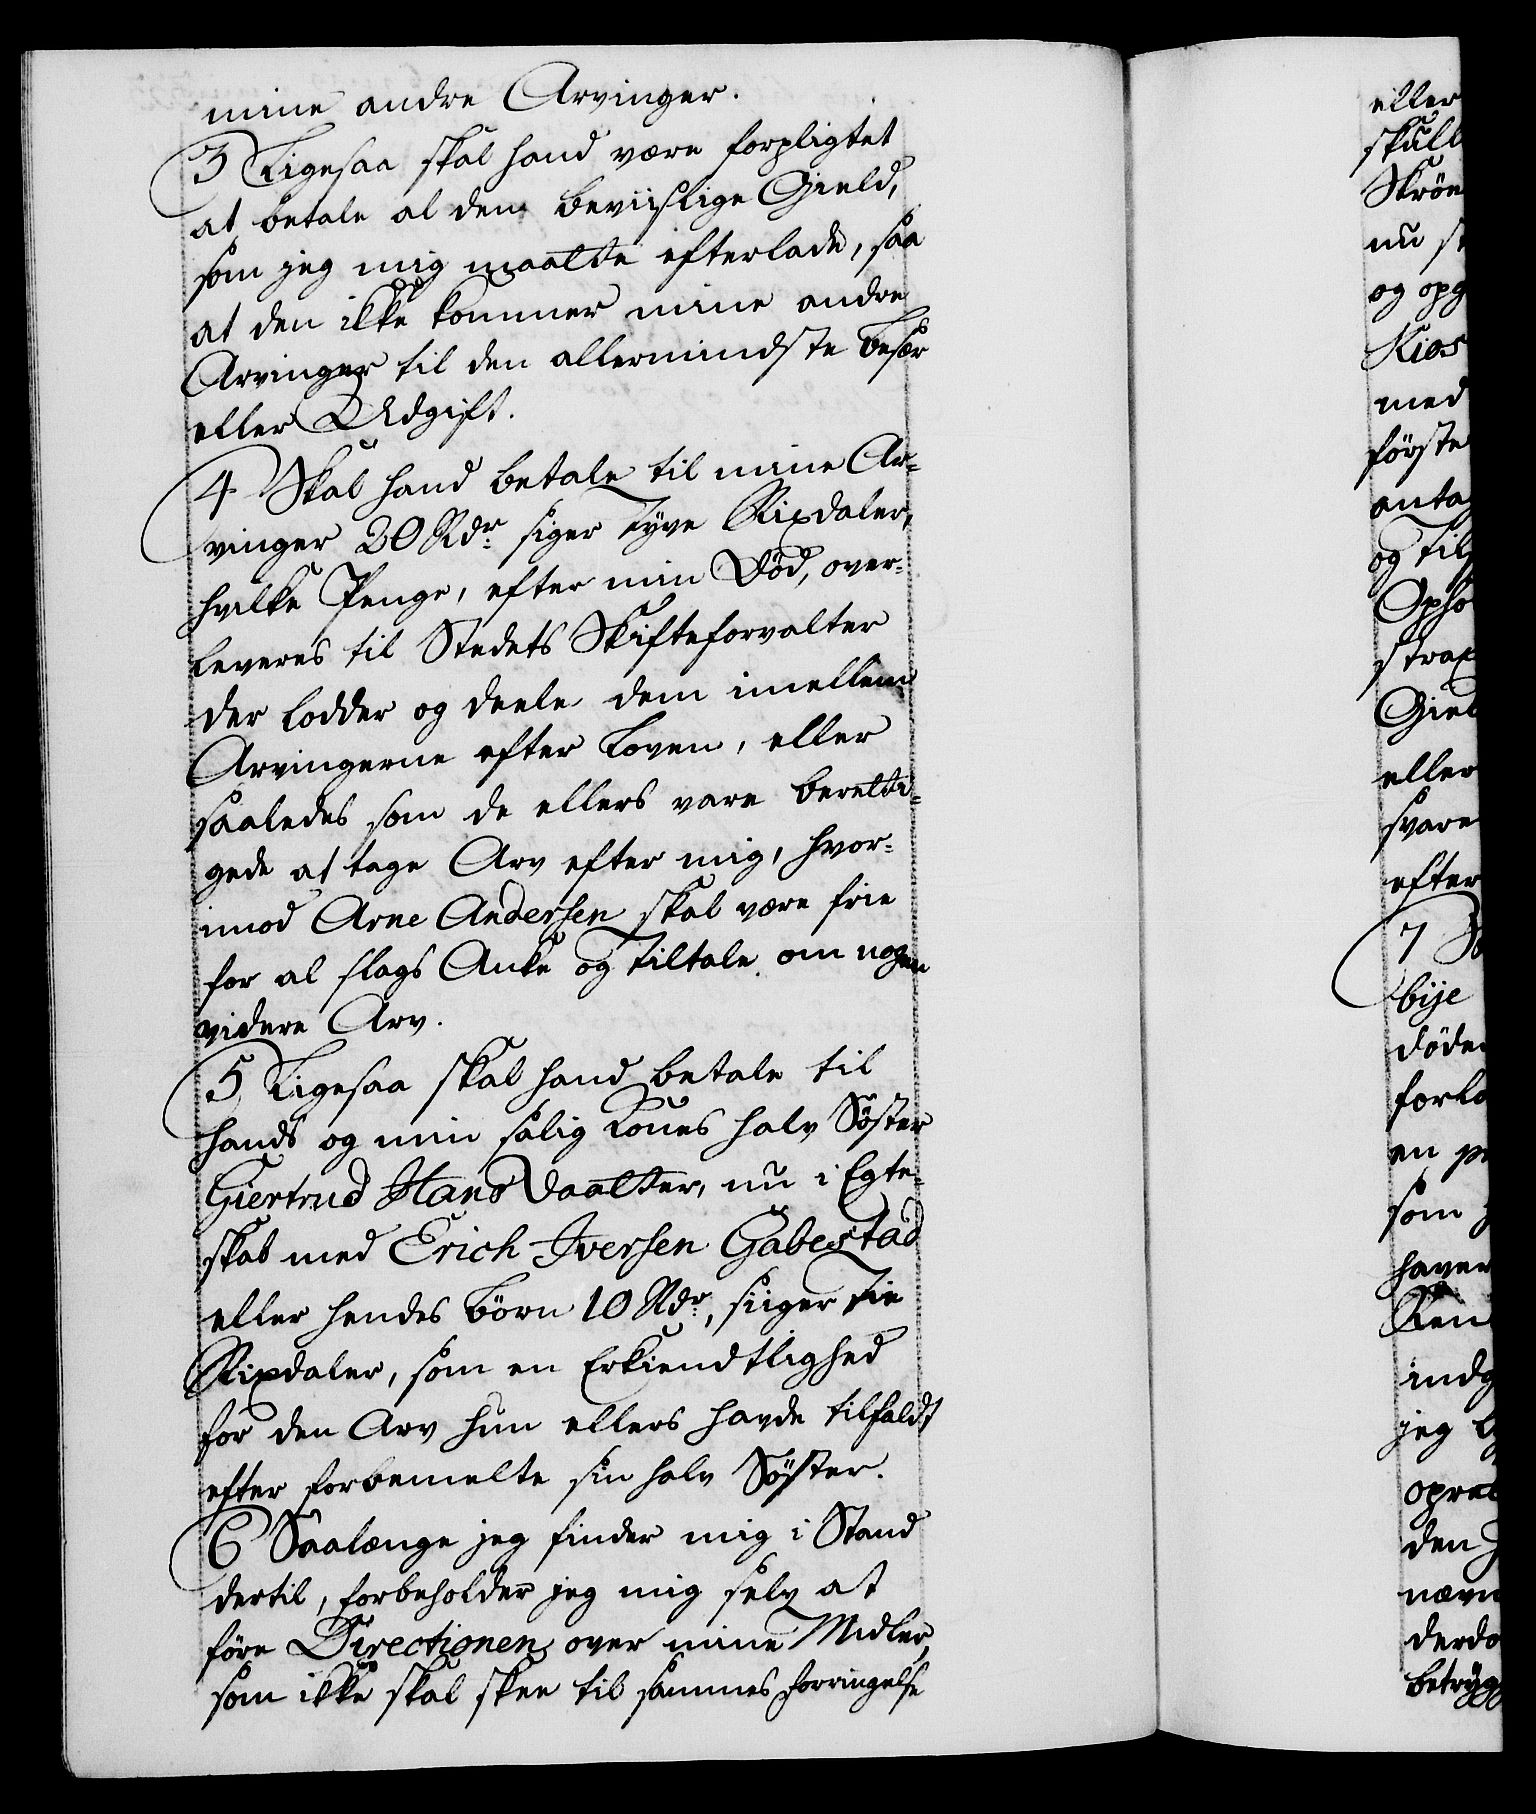 mine andre Arvinger.
3 Ligesaa skal hand være forpligtet
at betale al den beviislige Gield,
som jeg mig maatte efterlade, saa
at den ikke kommer mine andre
Arvinger til den allermindste besær
eller Udgift.
4 Skal hand betale til mine Ar-
vinger 20 Rdr: siger Tyve Rixdaler,
hvilke Penge, efter min Död, over-
leveres til Stedets Skifteforvalter
der lodder og deele dem imellem
Arvingerne efter Loven, eller
saaledes som de ellers vare beretti-
gede at tage Arv efter mig, hvor-
imod Arne Andersen skal være frie
for al slags Anke og Tiltale om nogen
videre Arv.
5 Ligesaa skal hand betale til
hands og min salig Kones halv Söster
Giertrud Hans Daatter, nu i Egte-
skab med Erich Iversen Gabestad
eller hendes Börn 10 Rdr:, siiger Tie
Rixdaler, som en Erkiendtlighed
for den Arv hun ellers havde tilfaldt
efter forbemelte sin halv Söster.
6 Saalænge jeg finder mig i Stand
dertil, forbeholder jeg mig selv at
före Directionen over mine Midler,
som ikke skal skee til sammes forringelse
eller
skull
nu
og opg
med
förste
anta
og Til
Opho
strax
Giel
eller
svare
efter
7
bije
döde
forlo
en
som
haver
Ren
indg
jeg
opret
den
nævn
derda
betryg